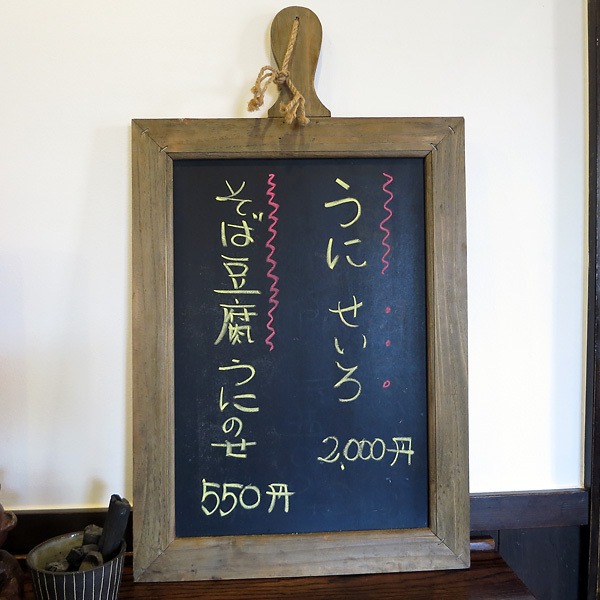 うに せいろ
2,000円
そば豆腐 うにのせ
550円